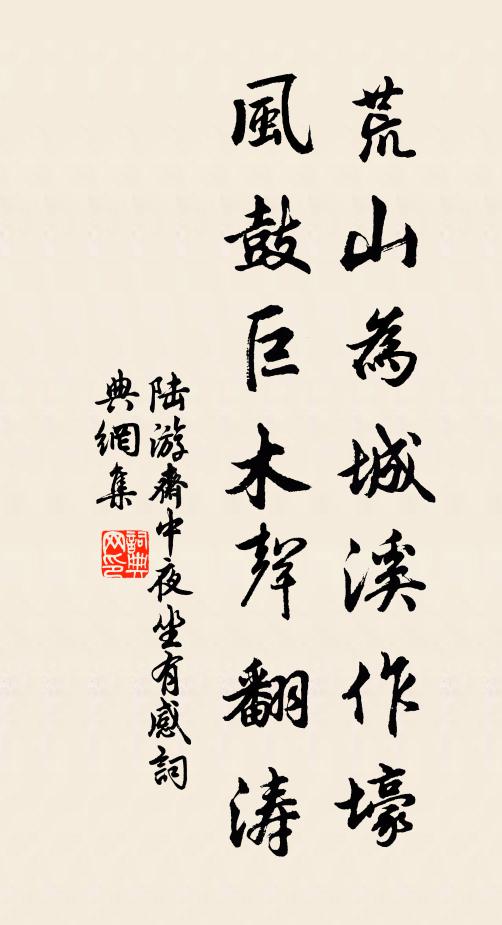 荒山為城溪作壕
風鼓巨木聲翻濤
陸游齋中夜坐有感詞
典網集
詞典
网印